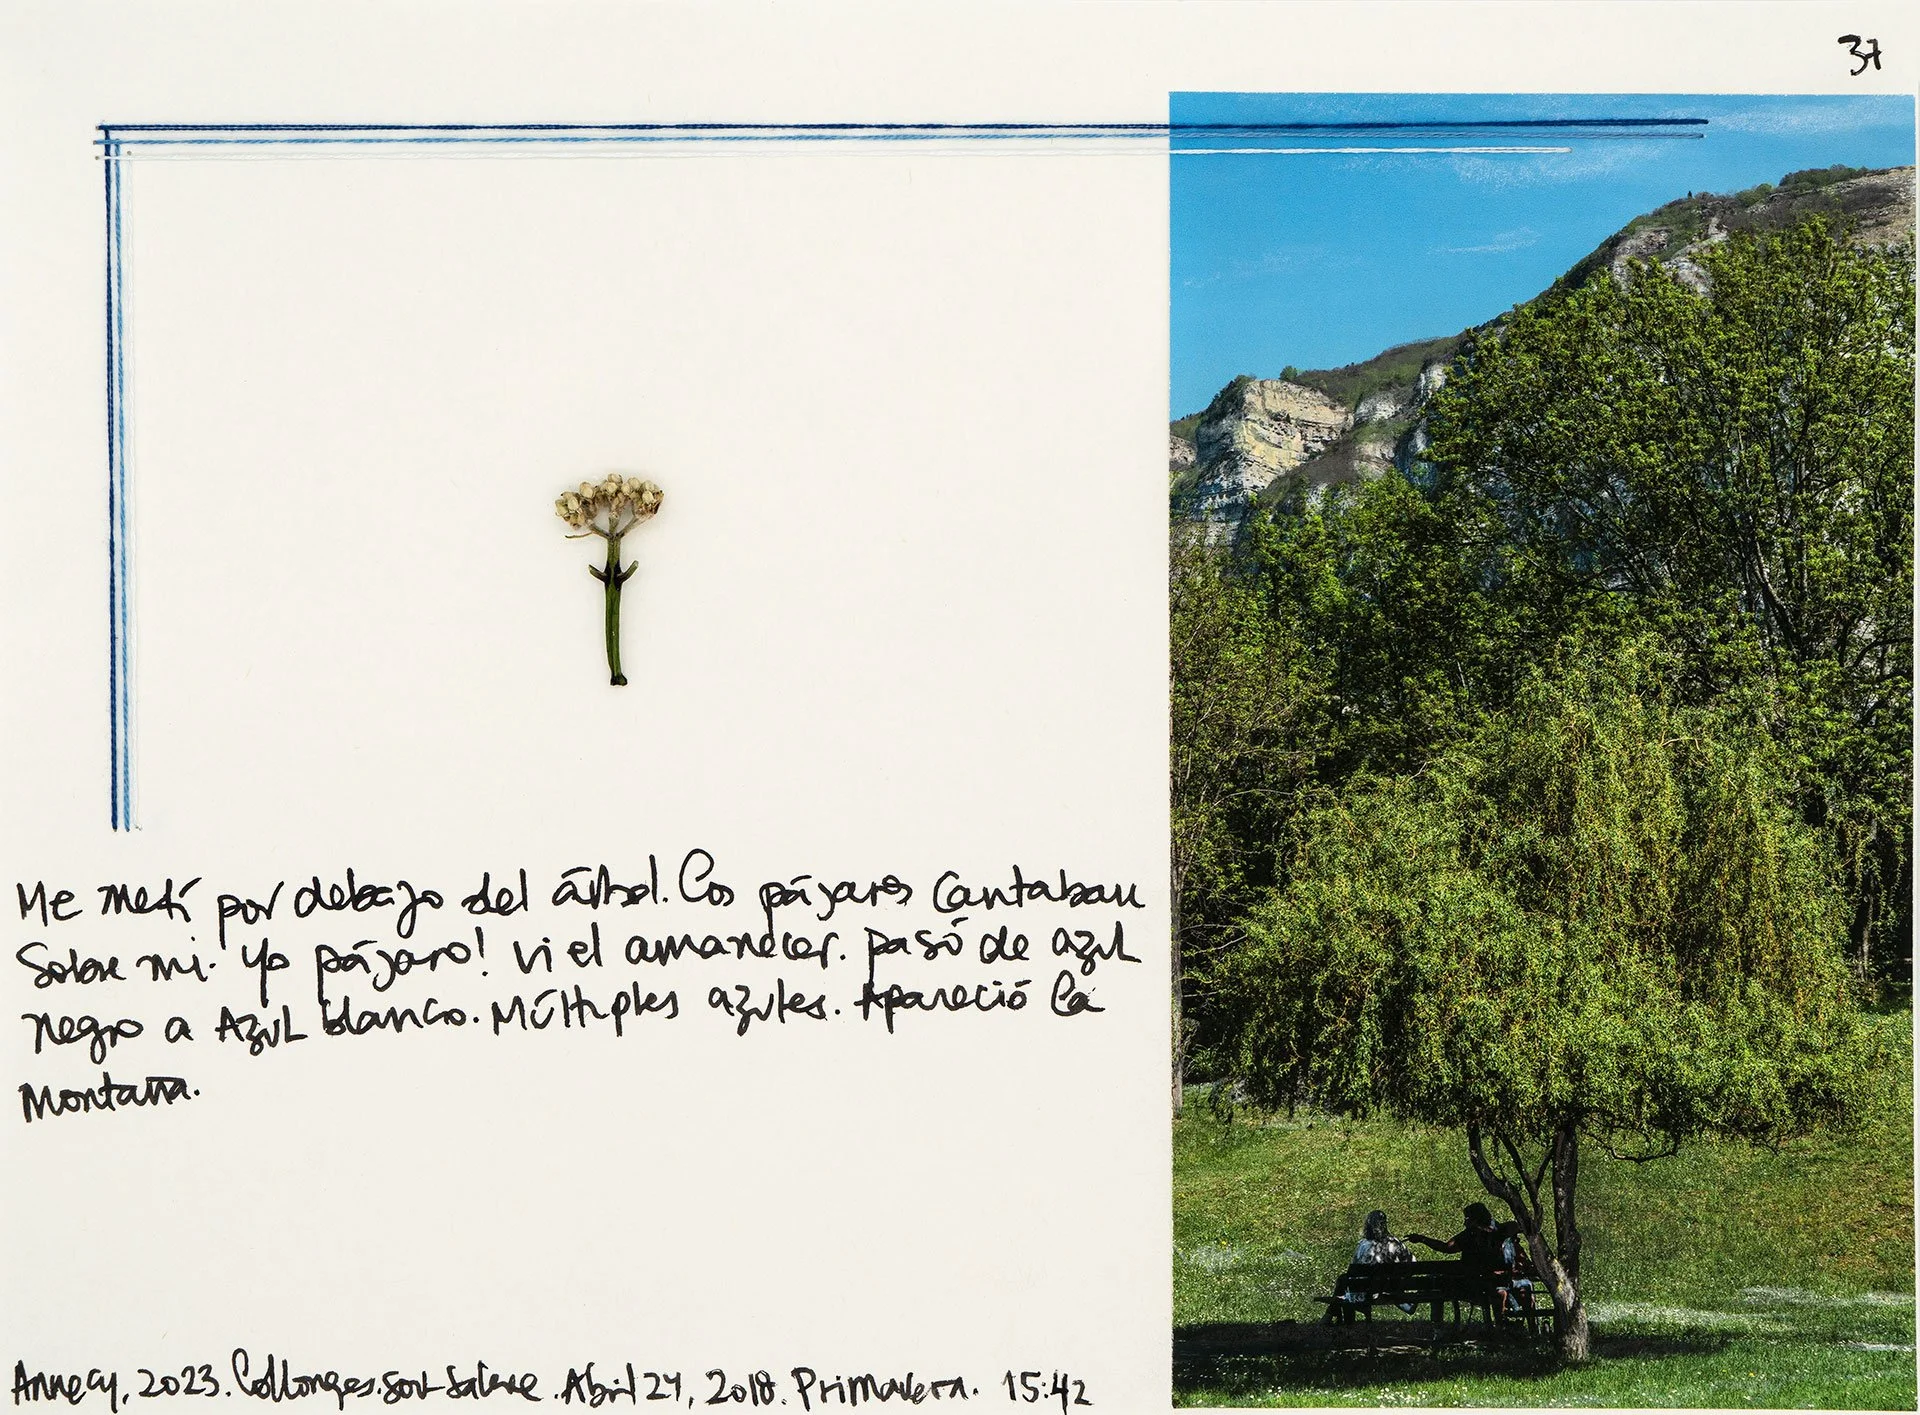 37
Me metí por debajo del árbol. Los pájaros cantaban
sobre mi. Yo pájaro! Vi el amanecer. Pasó de azul
negro a Azul blanco. Múltiples azules. Apareció la
Montaña.
Annecy, 2023. Collonges-sous-Salève. Abril 24, 2018. Primavera. 15:42